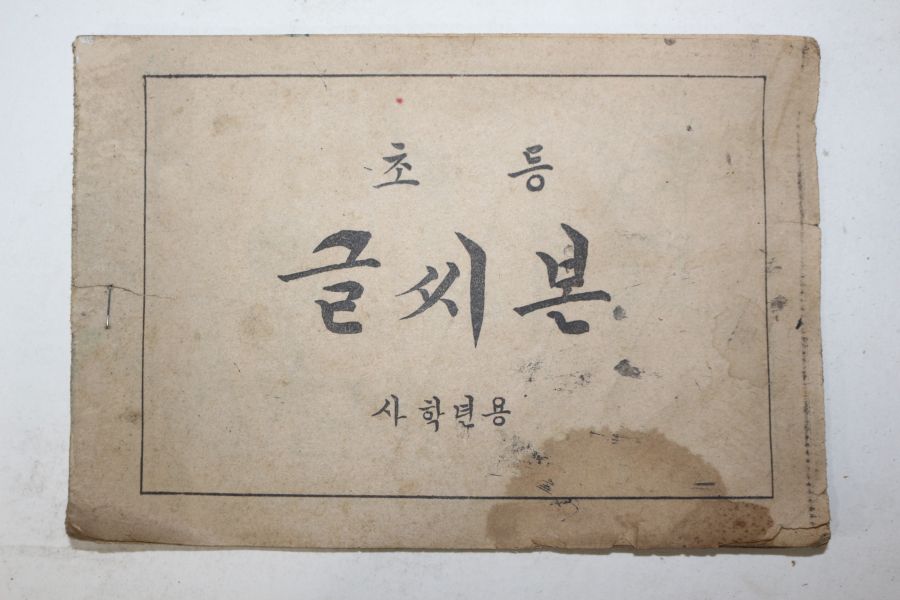 초등
글씨본
사학년용